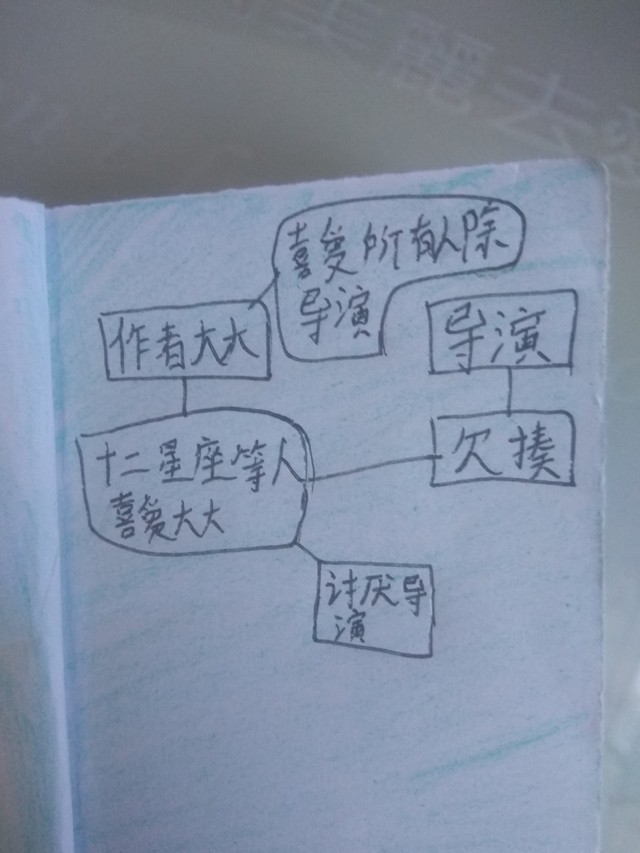 美麗去
喜爱所有人除
导演
作者大大
导演
十二星座等人
喜爱大大
欠揍
讨厌导
演